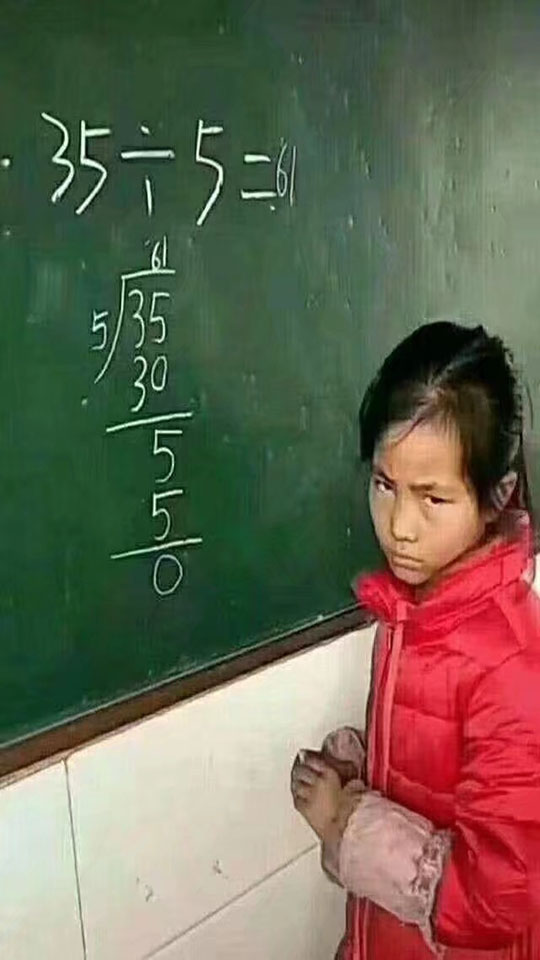 35÷5=61
61
5)35
30
5
5
0